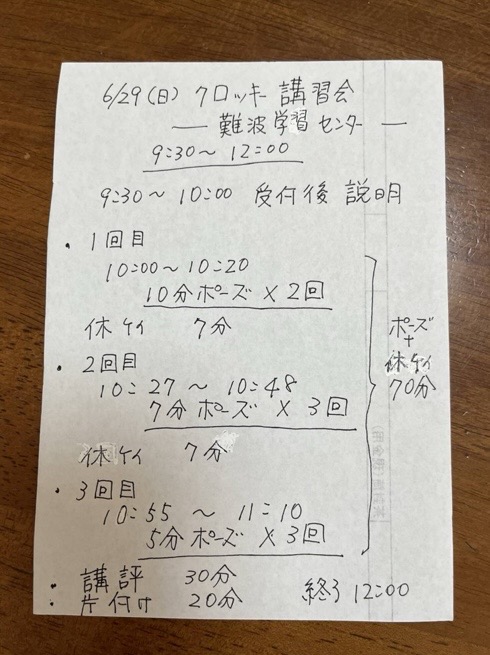 6/29(日) クロッキー講習会
― 難波学習センター ―
9:30～12:00
9:30～10:00 受付後 説明
・1回目
10:00～10:20
10分ポーズ×2回
休ケイ 7分
・2回目
10:27～10:48
7分ポーズ×3回
休ケイ 7分
・3回目
10:55～11:10
5分ポーズ×3回
ポーズ
+
休ケイ
70分
・講評 30分
・片付け 20分 終了 12:00